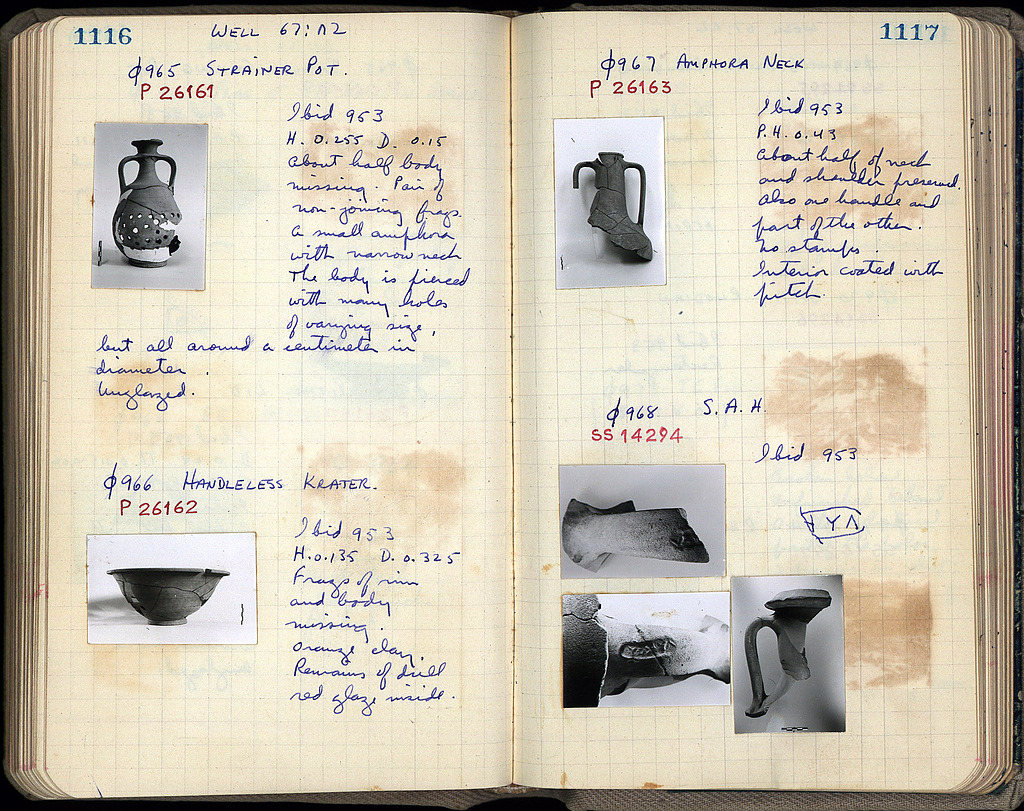 1116
WELL 67:Λ2
ϕ965 STRAINER POT.
P 26161
Ibid 953
H. 0.255 D. 0.15
About half body
missing. Pair of
non-joining frags.
A small amphora
with narrow neck
The body is pierced
with many holes
of varying size,
but all around a centimeter in
diameter.
Unglazed.
ϕ966 HANDLELESS KRATER.
P 26162
Ibid 953
H. 0.135 D. 0.325
Frags of rim
and body
missing.
Orange clay.
Remains of dull
red glaze inside.
1117
ϕ967 AMPHORA NECK
P 26163
Ibid 953
P.H. 0.43
About half of neck
and shoulder preserved.
Also one handle and
part of the other.
No stamps.
Interior coated with
pitch.
ϕ968 S.A.H.
SS 14294
Ibid 953